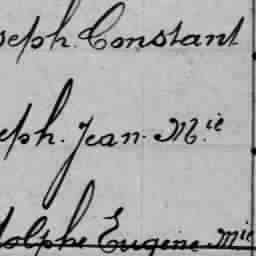 seph. Constant
eph. Jean. M.ie
dolphe Eugène Mie